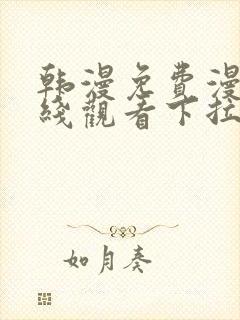 韩漫免費漫
綫觀看下拉
如月奏